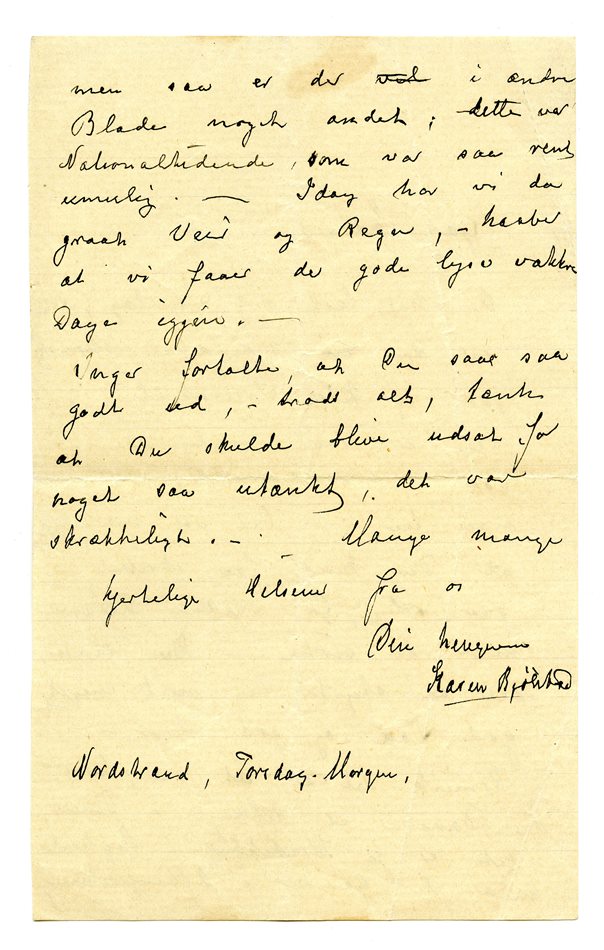 men saa er der vel i andre
Blade noget andet; dette var
Nationaltidende, som var saa rent
umulig. — Idag har vi da
graat Veir og Regn, – haaber
at vi faaer de gode lyse vakkre
Dage iggjen. —
Inger fortalte, at Du saae saa
godt ud, – trods alt, tænk
at Du skulde blive udsat for
noget saa utænkt, det var
skrækkeligt. – Mange mange
hjertelige Hilsener fra os
Din hengivne
Karen Bjølstad
Nordstrand, Torsdag-Morgen,